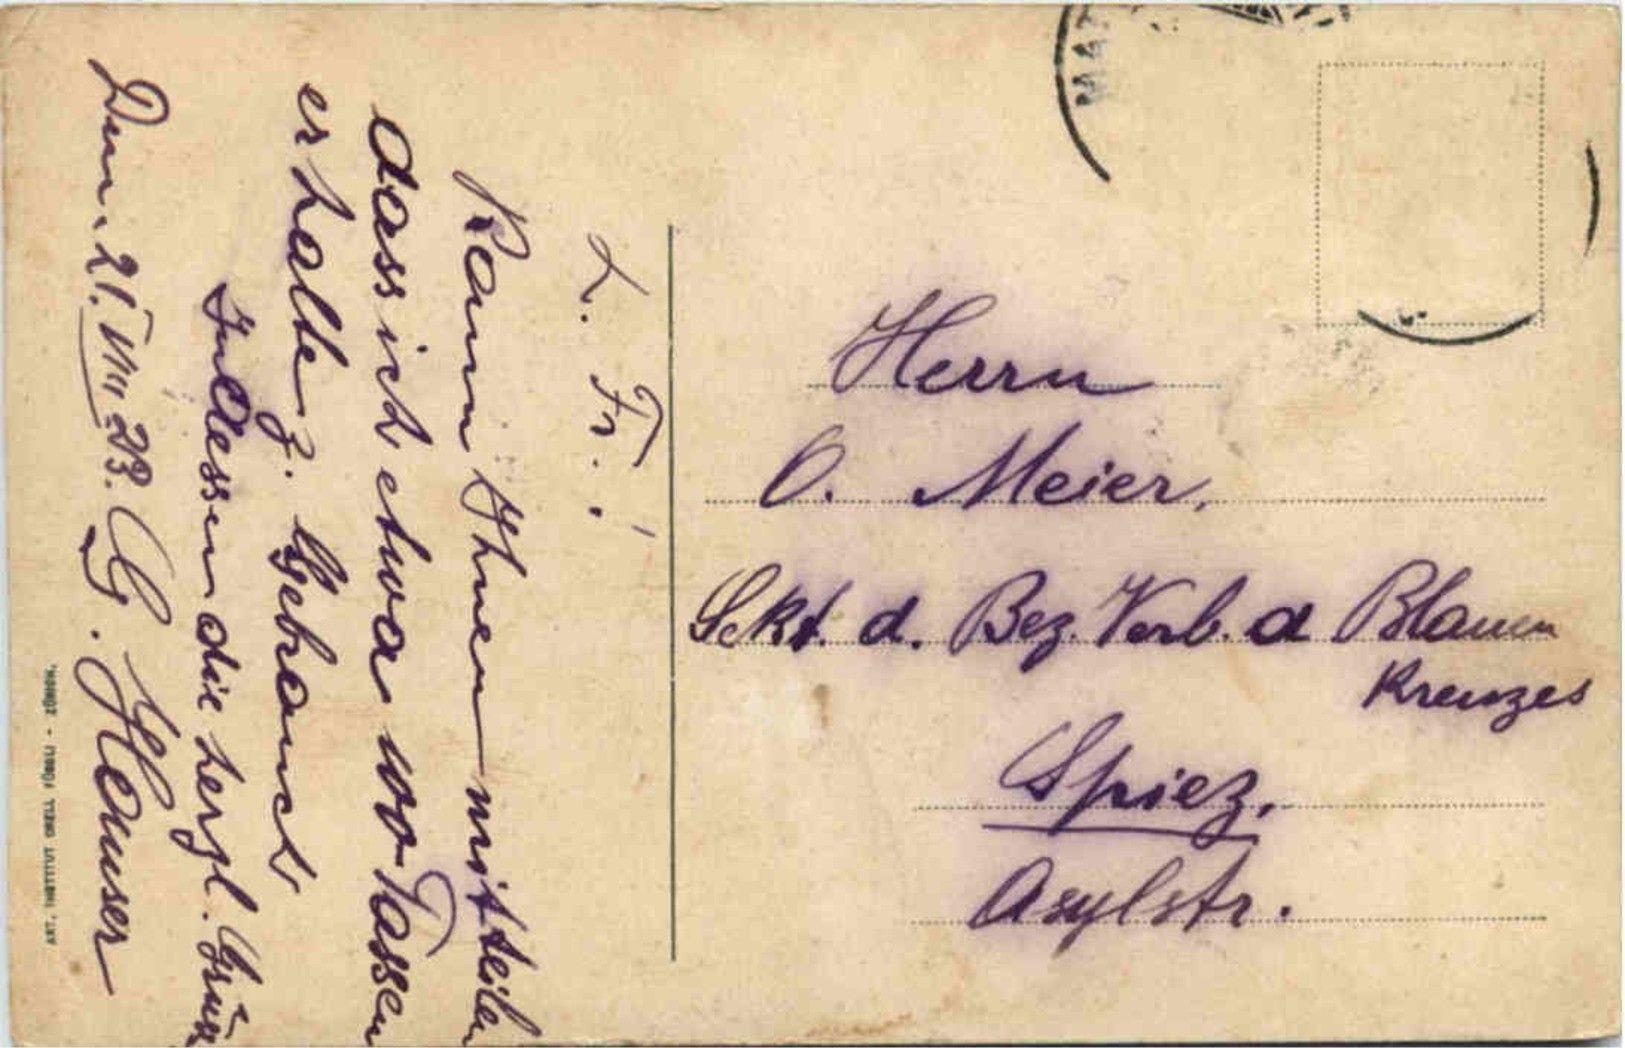 L. Fr.!
Kann Ihnen mitteilen
dass ich etwa 100 Tassen
erhalte z. Gebrauch
Indessen die herzl. Grüsse
Den. 21. VIII 23. G. Hauser
Herrn
O. Meier,
Sekt. d. Bez. Verb. d Blauen
Kreuzes
Spiez,
Asylstr.
ART. INSTITUT ORELL FÜSSLI - ZÜRICH.